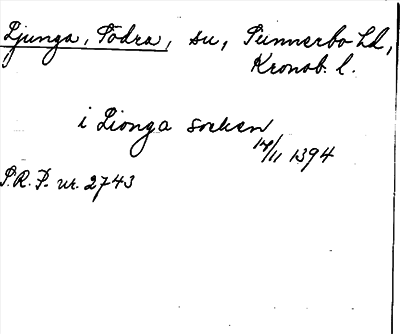 Ljunga, Södra, sn, Sunnerbo hd,
Kronob. l.
i Lionga socken
14/11 1394
S.R.P. nr. 2743